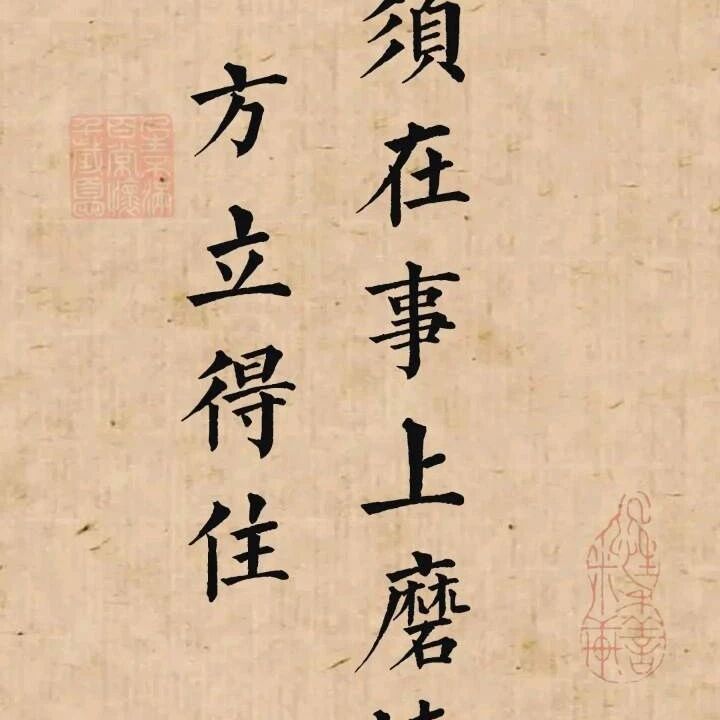 須在事上磨
方立得住